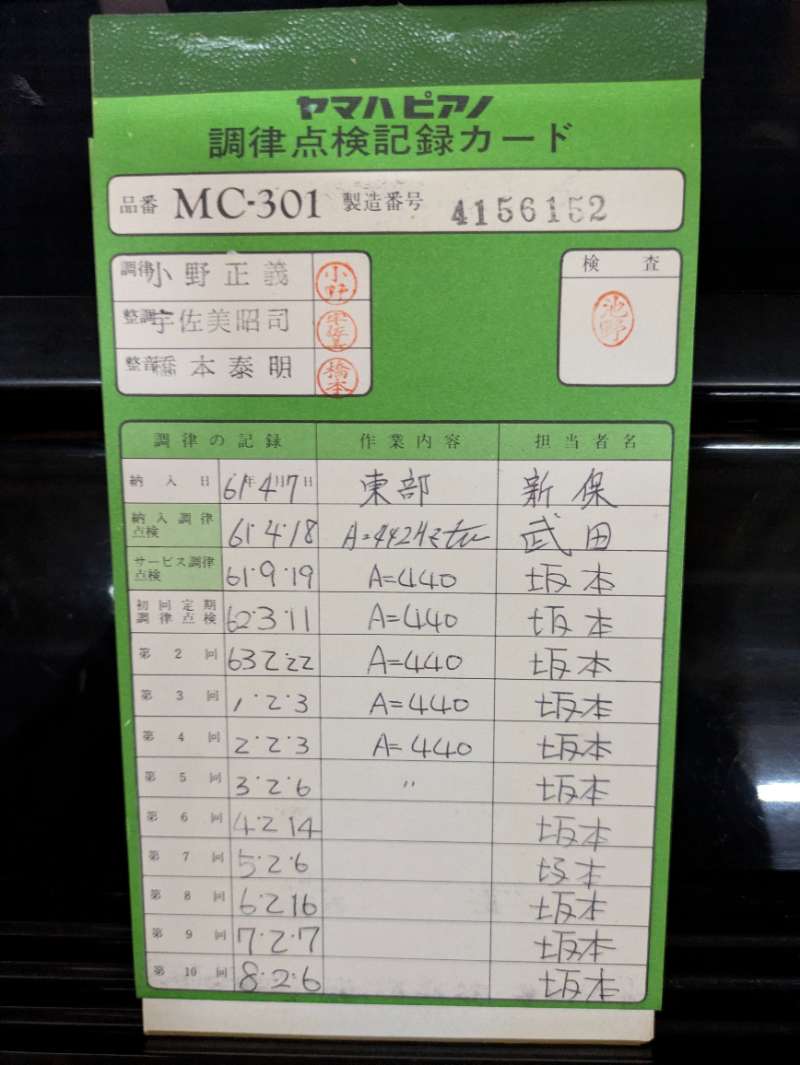 ヤマハピアノ
調律点検記録カード
品番 MC-301 製造番号 4156152
調律 小野正義 小野
整調 宇佐美昭司 宇佐美
整音 橋本泰明 橋本
検査
池野
調律の記録 作業内容 担当者名
納入日 61年4月7日 東部 新保
納入調律点検 61・4・18 A=442Hz 武田
サービス調律点検 61・9・19 A=440 坂本
初回定期調律点検 62・3・11 A=440 坂本
第2回 63 2・22 A=440 坂本
第3回 1・2・3 A=440 坂本
第4回 2・2・3 A=440 坂本
第5回 3・2・6 〃 坂本
第6回 4・2 14 坂本
第7回 5・2・6 坂本
第8回 6・2 16 坂本
第9回 7・2・7 坂本
第10回 8・2・6 坂本